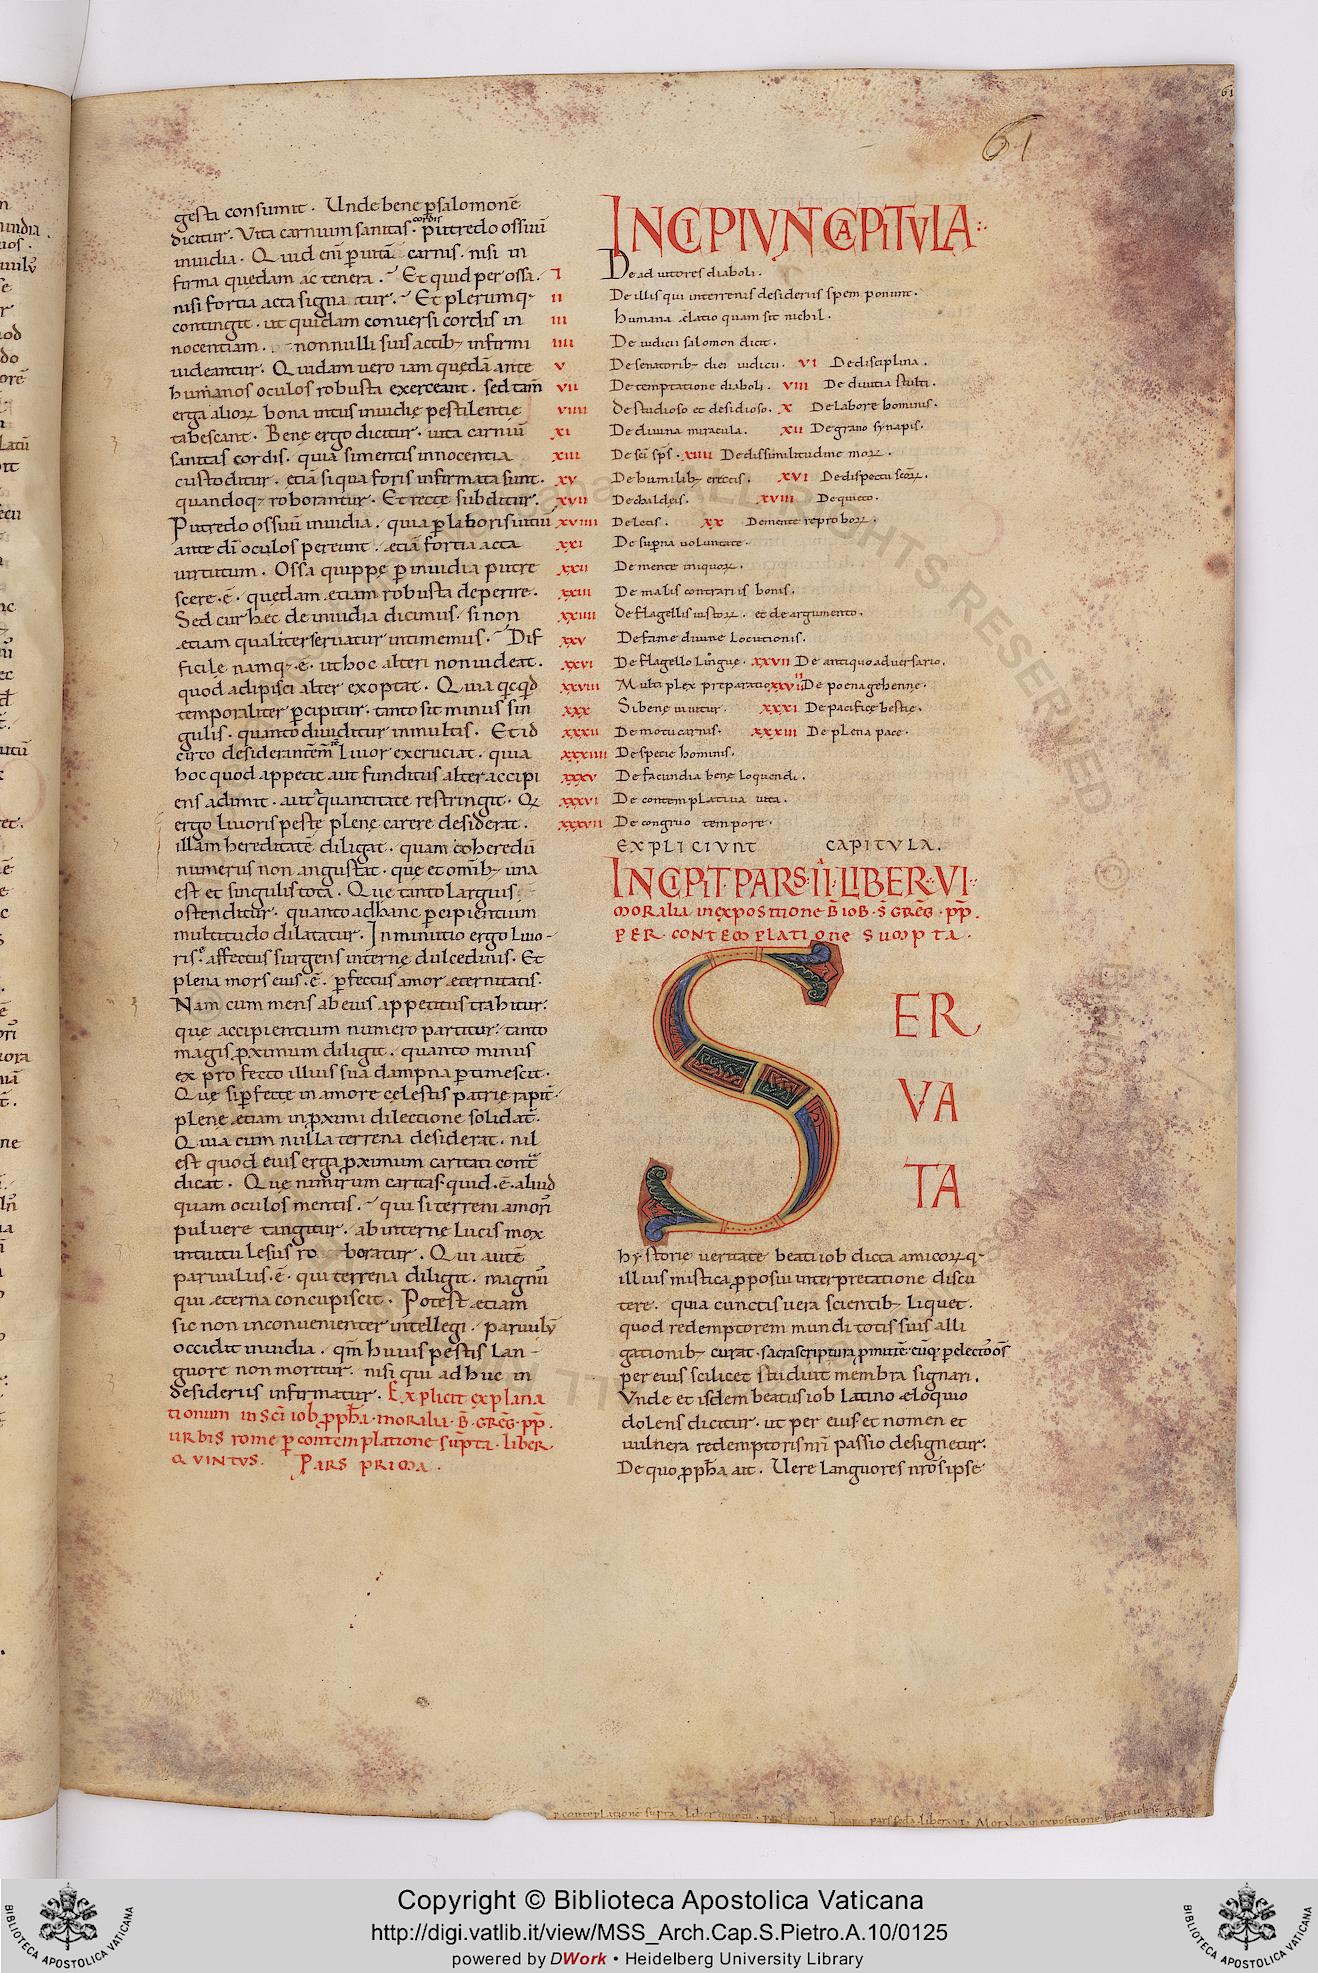 61
61
gesta consumit. Unde bene p salomonē
dicitur. Vita carnium sanitas cordis. putredo ossiuū
inuidia. Quid eni p uitā carnis. nisi in
firma quedam ac tenera. Et quid per ossa.
nisi fortia acta signatur. Et plerumq;
contingit. ut quidam conuersi cordis in
nocentiam. nonnulli suis actib; infirmi
uideantur. Quidam uero iam quedā ante
humanos oculos robusta exerceant. sed tam
erga alioꝝ bona intus inuidię pestilentie
tabescant. Bene ergo dicitur. uita carniū
sanitas cordis. quia si mentis innocentia
custoditur. etiā si qua foris infirmata sunt.
quandoq; roborantur. Et recte subditur.
Putredo ossiuū inuidia. quia p laboris uitiū
ante dī oculos pereunt. etiā fortia acta
uirtutum. Ossa quippe p inuidia putre
scere .ē. quędam etiam robusta deperire.
Sed cur hęc de inuidia dicimus. si non
etiam qualiter seruatur intimemus. Dif
ficile namq; .ē. ut hoc alteri non uideat.
quod adipisci alter exoptat. Quia qcqd
temporaliter pcipitur. tanto fit minus sin
gulis. quanto diuiditur in multis. Et id
circo desiderantem Liuor excruciat. quia
hoc quod appetit aut funditus alter accipi
ens adimit. aut quantitate restringit. Q
ergo Liuoris peste plene carere desiderat.
illam hereditatē diligat. quam coheredū
numerus non angustat. que et omib; una
est et singulis tota. Que tanto largius
ostenditur. quanto ad hanc pcipientium
multitudo dilatatur. Inminutio ergo Liuo-
ris. affectus surgens internę dulcedinis. Et
plena mors eius .ē. pfectus amor eternitatis.
Nam cum mens ab eius appetitus trahitur.
que accipientium numero partitur. tanto
magis pximum diligit. quanto minus
ex profecto illius sua dampna ptimescit.
Que si pfecte in amore celestis patrie rapit.
plene etiam in pximi dilectione solidat.
Quia cum nulla terrena desiderat. nil
est quod eius erga pximum caritati cont
dicat. Que nimirum caritas quid .ē. aliud
quam oculos mentis. qui si terreni amori
puluere tangitur. ab interne Lucis mox
intuitu Lesus roboratur. Qui autē
paruulus .ē. qui terrena diligit. magnū
qui eterna concupiscit. Potest etiam
sic non inconuenienter intellegi. paruulū
occidit inuidia. qm huius pestis Lan-
guore non moritur. nisi qui adhuc in
desideriis infirmatur. Explicit explana
tionum in sci iob ppha. moralia. B. GREG. PP.
urbis rome p contemplatione supta. liber
QVINTVS. PARS PRIMA.
INCIPIVNT CAPITVLA
I De aduitores diaboli.
II De illis qui in terrenis desideriis spem ponunt.
III Humana elatio quam sit nichil.
IIII De iudicii salomon dicit.
V De senatorib; diei iudicii. VI De disciplina.
VII De temptatione diaboli. VIII De diuitia stulti.
VIIII De studioso et desidioso. X De labore hominis.
XI De diuina miracula. XII De grano synapis.
XIII De sci sps. XIIII De dissimilitudine moꝝ.
XV De humilib; erectis. XVI De dispectu scoꝝ.
XVII De chaldeis. XVIII De quieto.
XVIIII De letis. XX De mente reproboꝝ.
XXI De supna uoluntate.
XXII De mente iniquoꝝ.
XXIII De malis contrariis bonis.
XXIIII De flagellis iustoꝝ. et de argumento.
XXV De fame diuine Locutionis.
XXVI De flagello Lingue. XXVII De antiquo aduersario.
XXVIII Multiplex preparatio XXVIIII De poena gehenne.
XXX Si bene uiuitur. XXXI De pacifice bestie.
XXXII De motu carnis. XXXIII De plena pace.
XXXIIII De specie hominis.
XXXV De facundia bene loquendi.
XXXVI De contemplatiua uita.
XXXVII De congruo tempore.
EXPLICIVNT CAPITVLA.
INCIPIT PARS II LIBER VI
MORALIA IN EXPOSITIONE B IOB S GREG PP.
PER CONTEMPLATIONE SUMPTA.
S
ER
VA
TA
hystorie ueritate beati iob dicta amicoꝝq;
illius mistica pposui interpretatione discu
tere. quia cunctis uera scientib; liquet.
quod redemptorem mundi totis suis alli
gationib; curat. sacra scriptura pmittē. eūq; p electos os
per eius scilicet studuit membra signari.
Vnde et isdem beatus iob Latino eloquio
dolens dicitur. ut per eius et nomen et
uulnera redemptoris nri passio designetur.
De quo ppha ait. Uere Languores nros ipse
Copyright © Biblioteca Apostolica Vaticana
http://digi.vatlib.it/view/MSS_Arch.Cap.S.Pietro.A.10/0125
powered by DWork • Heidelberg University Library
BIBLIOTECA APOSTOLICA VATICANA
BIBLIOTECA APOSTOLICA VATICANA